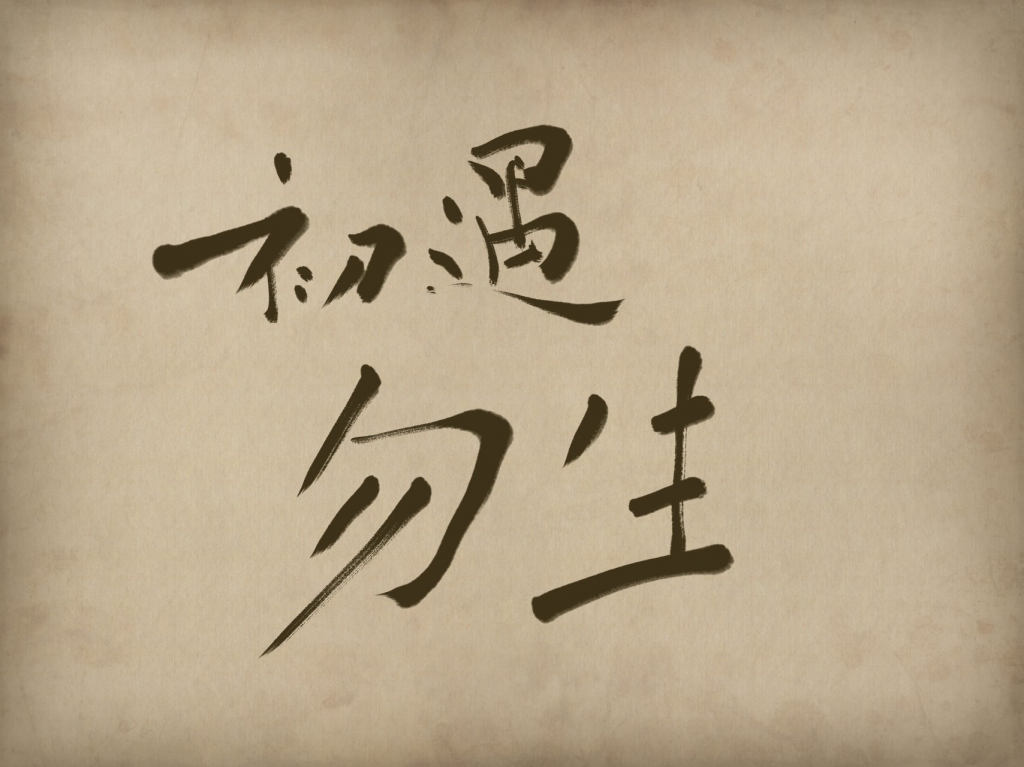 初遇
勿生